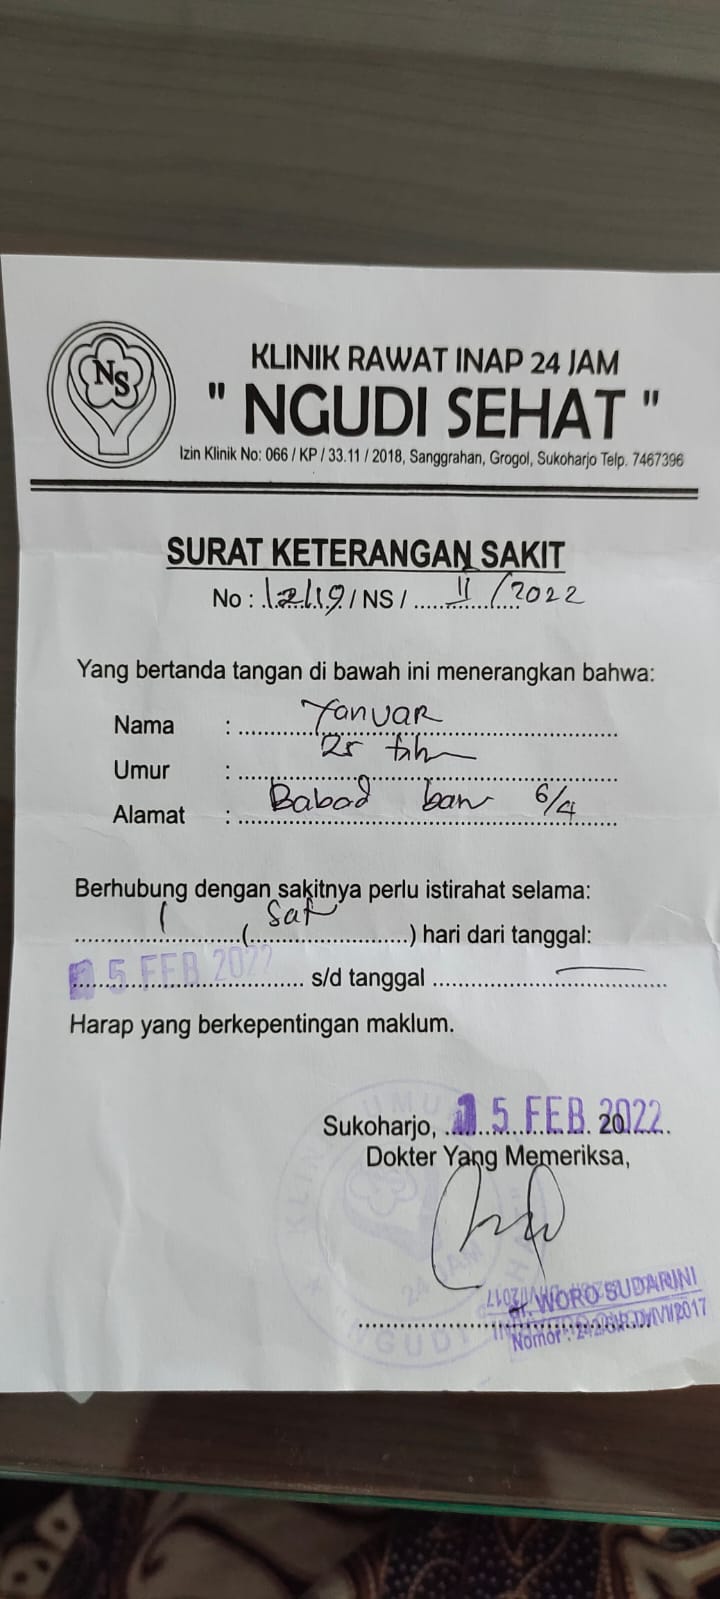 NS
KLINIK RAWAT INAP 24 JAM
" NGUDI SEHAT "
Izin Klinik No: 066 / KP / 33.11 / 2018, Sanggrahan, Grogol, Sukoharjo Telp. 7467396
SURAT KETERANGAN SAKIT
No : 1219 / NS / II / 2022
Yang bertanda tangan di bawah ini menerangkan bahwa:
Nama : Yanuar
Umur : 25 th
Alamat : Babad 6/4
Berhubung dengan sakitnya perlu istirahat selama:
1 ( Sat ) hari dari tanggal:
15 FEB 2022 s/d tanggal —
Harap yang berkepentingan maklum.
Sukoharjo, 15 FEB 2022
Dokter Yang Memeriksa,
dr. WORO SUDARINI
Nomor :